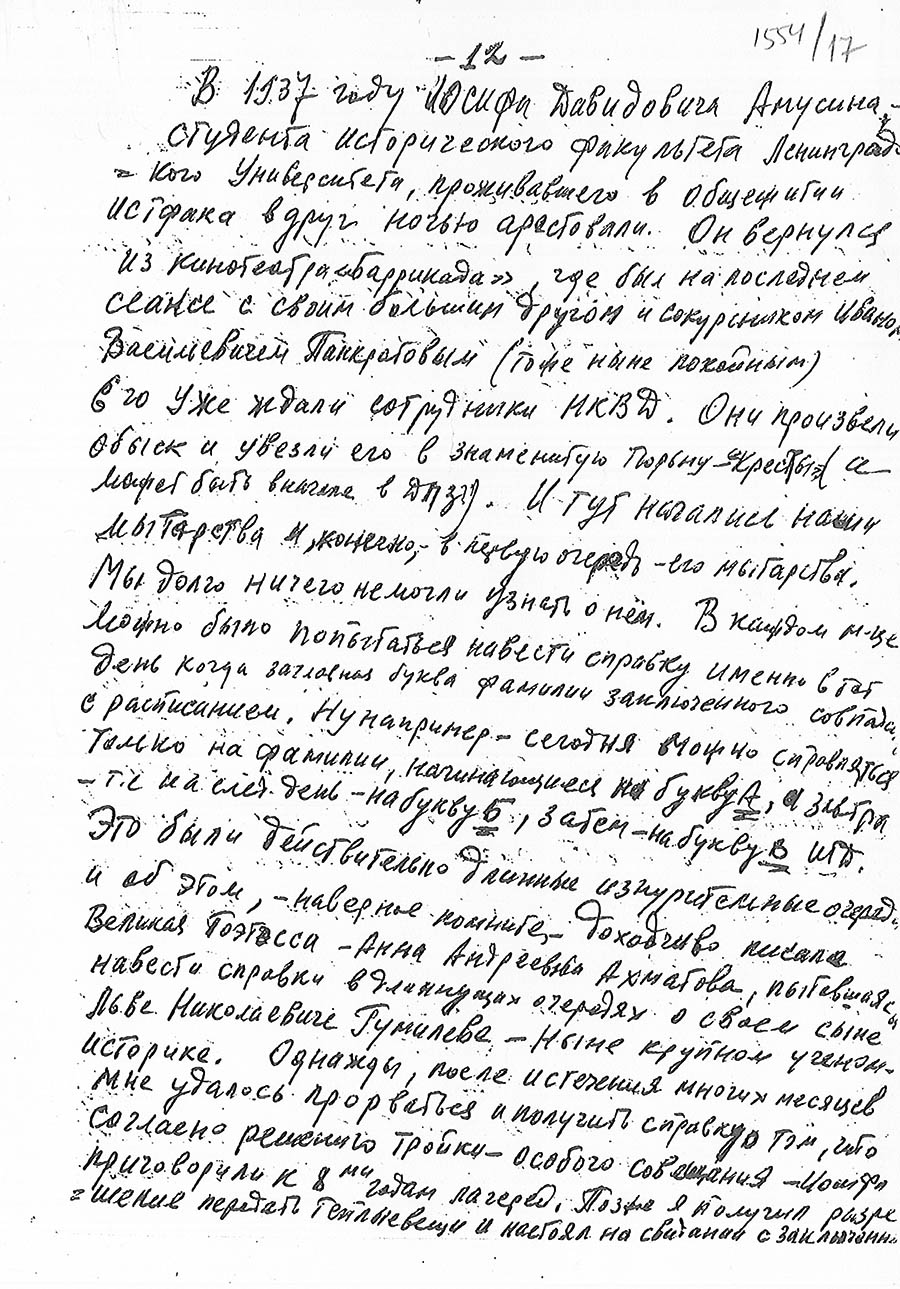 1554/17
- 12 -
В 1937 году Иосифа Давидовича Амусина, -
студента исторического факультета Ленинградс
= кого Университета, проживавшего в общежитии
Истфака вдруг ночью арестовали. Он вернулся
из кинотеатра «Баррикада», где был на последнем
сеансе с своим большим другом и сокурсником Иваном
Васильевичем Панкратовым (тоже ныне покойным)
Его уже ждали сотрудники НКВД. Они произвели
обыск и увезли его в знаменитую тюрьму - «Кресты» (а
может быть вначале в ДПЗ). И тут начались наши
мытарства и, конечно, - в первую очередь - его мытарства.
Мы долго ничего не могли узнать о нём. В каждом м-це
можно было попытаться навести справку именно в тот
день когда заглавная буква фамилии заключенного совпада
с расписанием. Ну например - сегодня можно справляться
только на фамилии, начинающиеся на букву А, а завтра
- т.е на след. день - на букву Б, затем - на букву В ИТД.
Это были действительно длинные изнурительные очереди
и об этом, - наверное помните, - доходчиво писала
Великая Поэтесса - Анна Андреевна Ахматова, пытавшаяся
навести справки в длиннущих очередях о своем сыне
Льве Николаевиче Гумилеве - Ныне крупном ученом-
историке. Однажды, после истечения многих месяцев
мне удалось прорваться и получить справку о том, что
согласно решению тройки - особого совещания - Иосифа
приговорили к 8ми годам лагерей. Позже я получил разре
= шение передать теплые вещи и настоял на свидании с заключенн